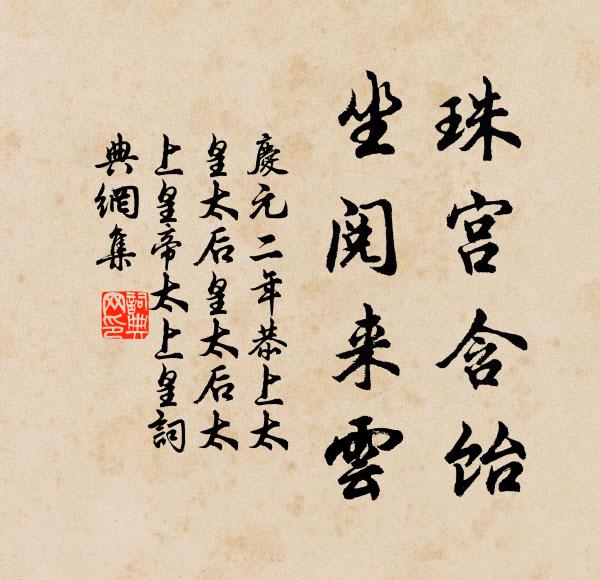 珠宫含饴
坐阅来雲
慶元二年恭上太
皇太后皇太后太
上皇帝太上皇詞
典網集
詞典
网印